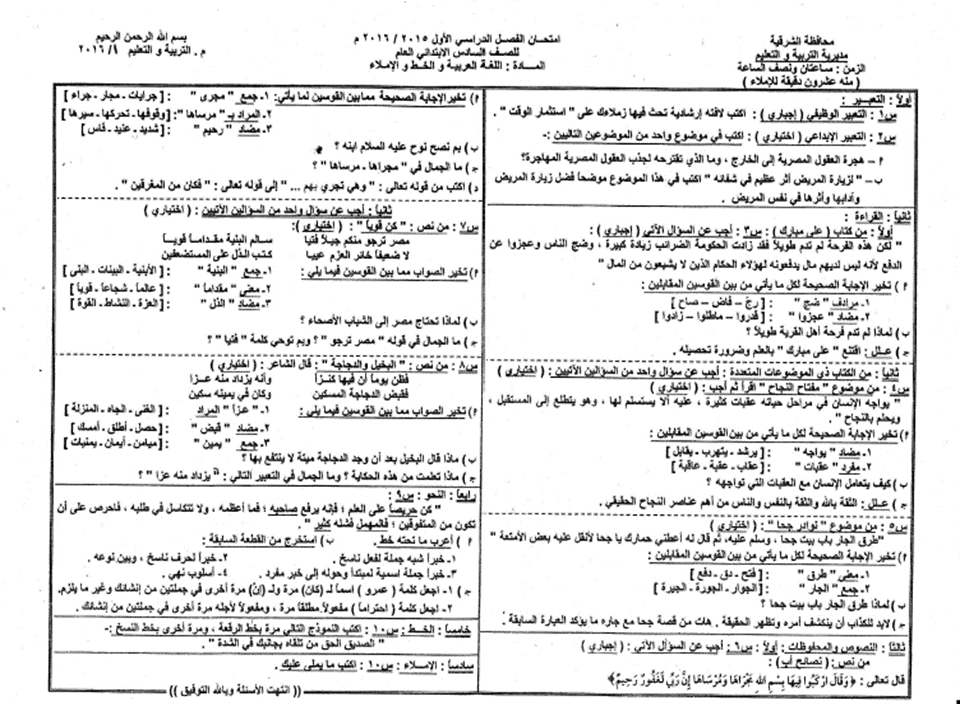 محافظة الشرقية
مديرية التربية و التعليم
الزمن : ساعتان ونصف الساعة
( منه عشرون دقيقة للإملاء )
امتحـان الفصـل الدراسـي الأول ٢٠١٥ / ٢٠١٦ م
للصـف السادس الابتدائي العام
المــادة : اللغة العربية و الخـط و الإملاء
بسم الله الرحمن الرحيم
م . التربية و التعليم ١/ ٢٠١٦
أولاً : التعبـيـر :
س١ : التعبير الوظيفي ( إجباري ) : اكتب لافتة إرشادية تحث فيها زملاءك على " استثمار الوقت " .
س٢ : التعبير الإبداعي ( اختياري ) : اكتب في موضوع واحد من الموضوعين التاليين :-
أ – هجرة العقول المصرية إلى الخارج ، وما الذي تقترحه لجذب العقول المصرية المهاجرة؟
ب- " لزيارة المريض أثر عظيم في شفائه " اكتب في هذا الموضوع موضحاً فضل زيارة المريض
وآدابها وأثرها في نفس المريض .
ثانياً : القراءة :
أولاً : من كتاب ( على مبارك ) : س٣ : أجب عن السؤال الآتي ( إجباري ) :
" لكن هذه الفرحة لم تدم طويلاً فقد زادت الحكومة الضرائب زيادة كبيرة ، وضج الناس وعجزوا عن
الدفع لأنه ليس لديهم مال يدفعونه لهؤلاء الحكام الذين لا يشبعون من المال "
أ ) تخير الإجابة الصحيحة لكل ما يأتي من بين القوسين المقابلين :
١- مرادف " ضج " : [ رجّ – فاض – صاح ]
٢- مضاد " عجزوا " : [ قدروا – ماطلوا – زادوا ]
ب) لماذا لم تدم فرحة أهل القرية طويلاً ؟
ج) علـل : اقتنع " على مبارك " بالعلم وضرورة تحصيله .
ثانياً : من الكتاب ذي الموضوعات المتعددة : أجب عن سؤال واحد من السؤالين الآتيين : ( اختياري )
س٤ : من موضوع " مفتاح النجاح " اقرأ ثم أجب : ( اختياري )
" يواجه الإنسان في مراحل حياته عقبات كثيرة ، عليه ألا يستسلم لها ، وهو يتطلع إلى المستقبل ،
ويحلم بالنجاح " .
أ) تخير الإجابة الصحيحة لكل ما يأتي من بين القوسين المقابلين :
١- مضاد " يواجه " : [ يرشد - يتهرب - يقابل ]
٢- مفرد " عقبات " : [ عقاب - عقبة - عاقبة ]
ب) كيف يتعامل الإنسان مع العقبات التي تواجهه ؟
ج ) علـل : الثقة بالله والثقة بالنفس والناس من أهم عناصر النجاح الحقيقي .
س٥ : من موضوع " نوادر جحا " : ( اختياري )
"طرق الجار باب بيت جحا ، وسلم عليه، ثم قال له أعطني حمارك يا جحا لأنقل عليه بعض الأمتعة "
أ) تخير الإجابة الصحيحة لكل ما يأتي من بين القوسين المقابلين :
١- معنى " طرق " : [ فتح - دق - دفع ]
٢- جمع " الجار " : [ الجوار - الجورة - الجيرة ]
ب) لماذا طرق الجار باب بيت جحا ؟
ج) لابد للكذاب أن ينكشف أمره وتظهر الحقيقة . هات من قصة جحا مع جاره ما يؤكد العبارة السابقة .
ثالثاً : النصوص والمحفوظات : أولاً : س٦ : أجب عن السؤال الآتي : ( إجباري )
من نص : ( نصائح أب) :
قال تعالى : ﴿ وَقَالَ ارْكَبُوا فِيهَا بِسْمِ اللهِ مَجْرَاهَا وَمُرْسَاهَا إِنَّ رَبِّي لَغَفُورٌ رَحِيمٌ﴾
أ) تخير الإجابة الصحيحة مما بين القوسين لما يأتي: ١- جمع " مجرى " : [ جرايات - مجار - جراء ]
٢- المراد بـ " مرساها ": [ وقوفها - تحركها - سيرها ]
٣- مضاد " رحيم " : [ شديد - عنيد - قاس ]
ب) بم نصح نوح عليه السلام ابنه ؟
ج) ما الجمال في " مجراها - مرساها " ؟
د) اكتب من قوله تعالى : " وهي تجري بهم ... " إلى قوله تعالى : " فكان من المغرقين " .
ثانياً : أجب عن سؤال واحد من السؤالين الآتيين : ( اختياري )
س٧ : من نص : " كن قوياً " : ( اختياري ):
مصر ترجو منكم جيلاً فتيا سـالم البنية مقدامـاً قويـاً
لا ضعيفاً خائر العزم عييا كتب الذل على المستضعفين
أ) تخير الصواب مما بين القوسين فيما يلي : ١- جمع " البنية " : [ الأبنية - البينات - البنى ]
٢- معنى " مقداماً " : [ عالماً - شجاعاً - قوياً ]
٣- مضاد " الذل " : [ العزة - النشاط - القوة ]
ب) لماذا تحتاج مصر إلى الشباب الأصحاء ؟
ج) ما الجمال في قوله " مصر ترجو " ؟ وبم توحي كلمة " فتيا " ؟
س٨ : من نص : " البخيل والدجاجة " : قال الشاعر : ( اختياري )
فظن يوماً أن فيها كنـزاً وأنه يزداد منه عـزا
فقبض الدجاجة المسكين وكان في يمينه سكين
أ) تخير الصواب مما بين القوسين فيما يلي : ١- " عزاً " المراد : [ الغنى - الجاه - المنزلة ]
٢- مضاد " قبض " : [ حصل - أطلق - أمسك ]
٣- جمع " يمين " : [ ميامن - أيمان - يمنيات ]
ب) ماذا قال البخيل بعد أن وجد الدجاجة ميتة لا ينتفع بها ؟
ج) ماذا تعلمت من هذه الحكاية ؟ وما الجمال في التعبير التالي : " يزداد منه عزا " ؟
رابعاً : النحو : س٩ :
" كن حريصاً على العلم ؛ فإنه يرفع صاحبه ؛ فما أعظمه ، ولا تتكاسل في طلبه ، فاحرص على أن
تكون من المتفوقين ؛ فالمهمل فشله كثير " .
أ ) أعرب ما تحته خط . ب) استخرج من القطعة السابقة :
١- خبراً شبه جملة لفعل ناسخ . ٢- خبراً لحرف ناسخ ، وبين نوعه .
٣- خبراً جملة اسمية لمبتدأ وحوله إلى خبر مفرد . ٤- أسلوب نهي .
ج ) ١- اجعل كلمة ( عمرو ) اسماً لـ (كان) مرة ولـ (إنّ) مرة أخرى في جملتين من إنشائك وغير ما يلزم.
٢- اجعل كلمة ( احتراما ) مفعولاً مطلقاً مرة ، ومفعولاً لأجله مرة أخرى في جملتين من إنشائك .
خامساً : الخـط : س١٠ : اكتب النموذج التالي مرة بخط الرقعة ، ومرة أخرى بخط النسخ :-
" الصديق الحق من تلقاه بجانبك في الشدة " .
سادساً : الإمـلاء : س١٠ : اكتب ما يملى عليك .
(( انتهت الأسئلة وبالله التوفيق ))